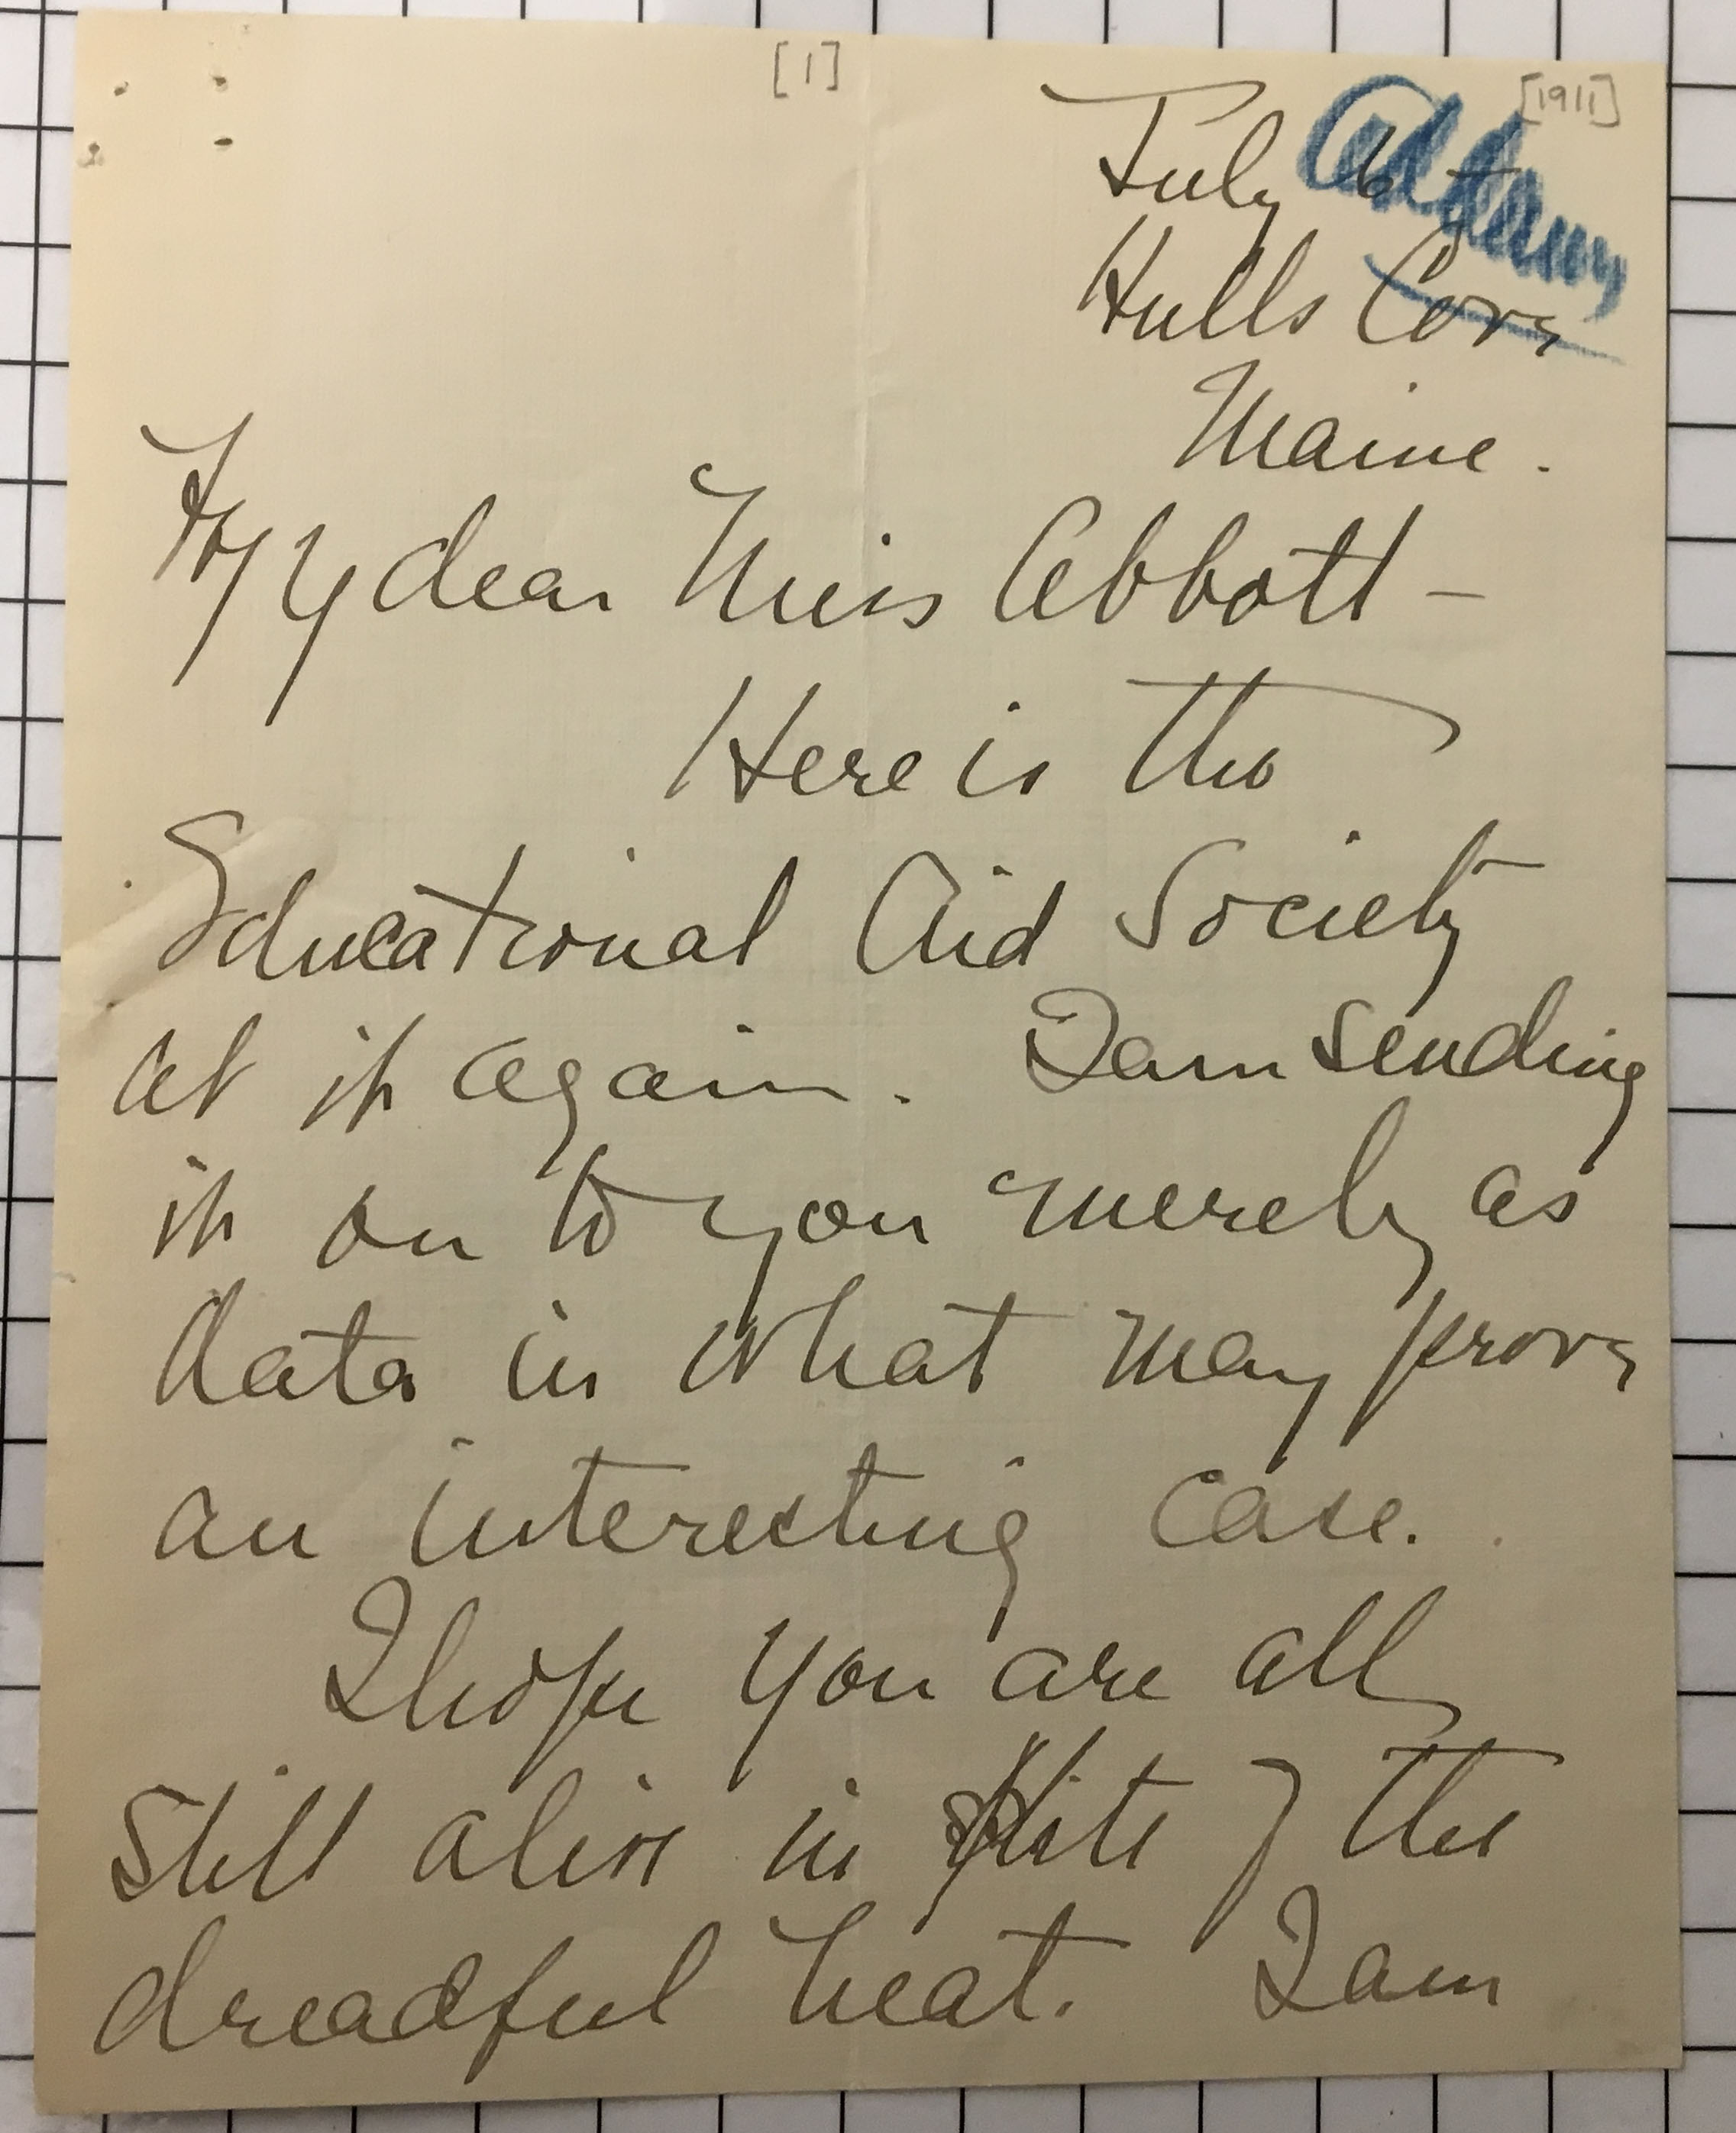 [1]
[1911]
Addams
July 6
Hulls Cove
Maine.
My dear Miss Abbott —
Here is the
Educational Aid Society
at it again. I am sending
it on to you merely as
data in what may prove
an interesting case.
I hope you are all
still alive in spite of the
dreadful heat. I am